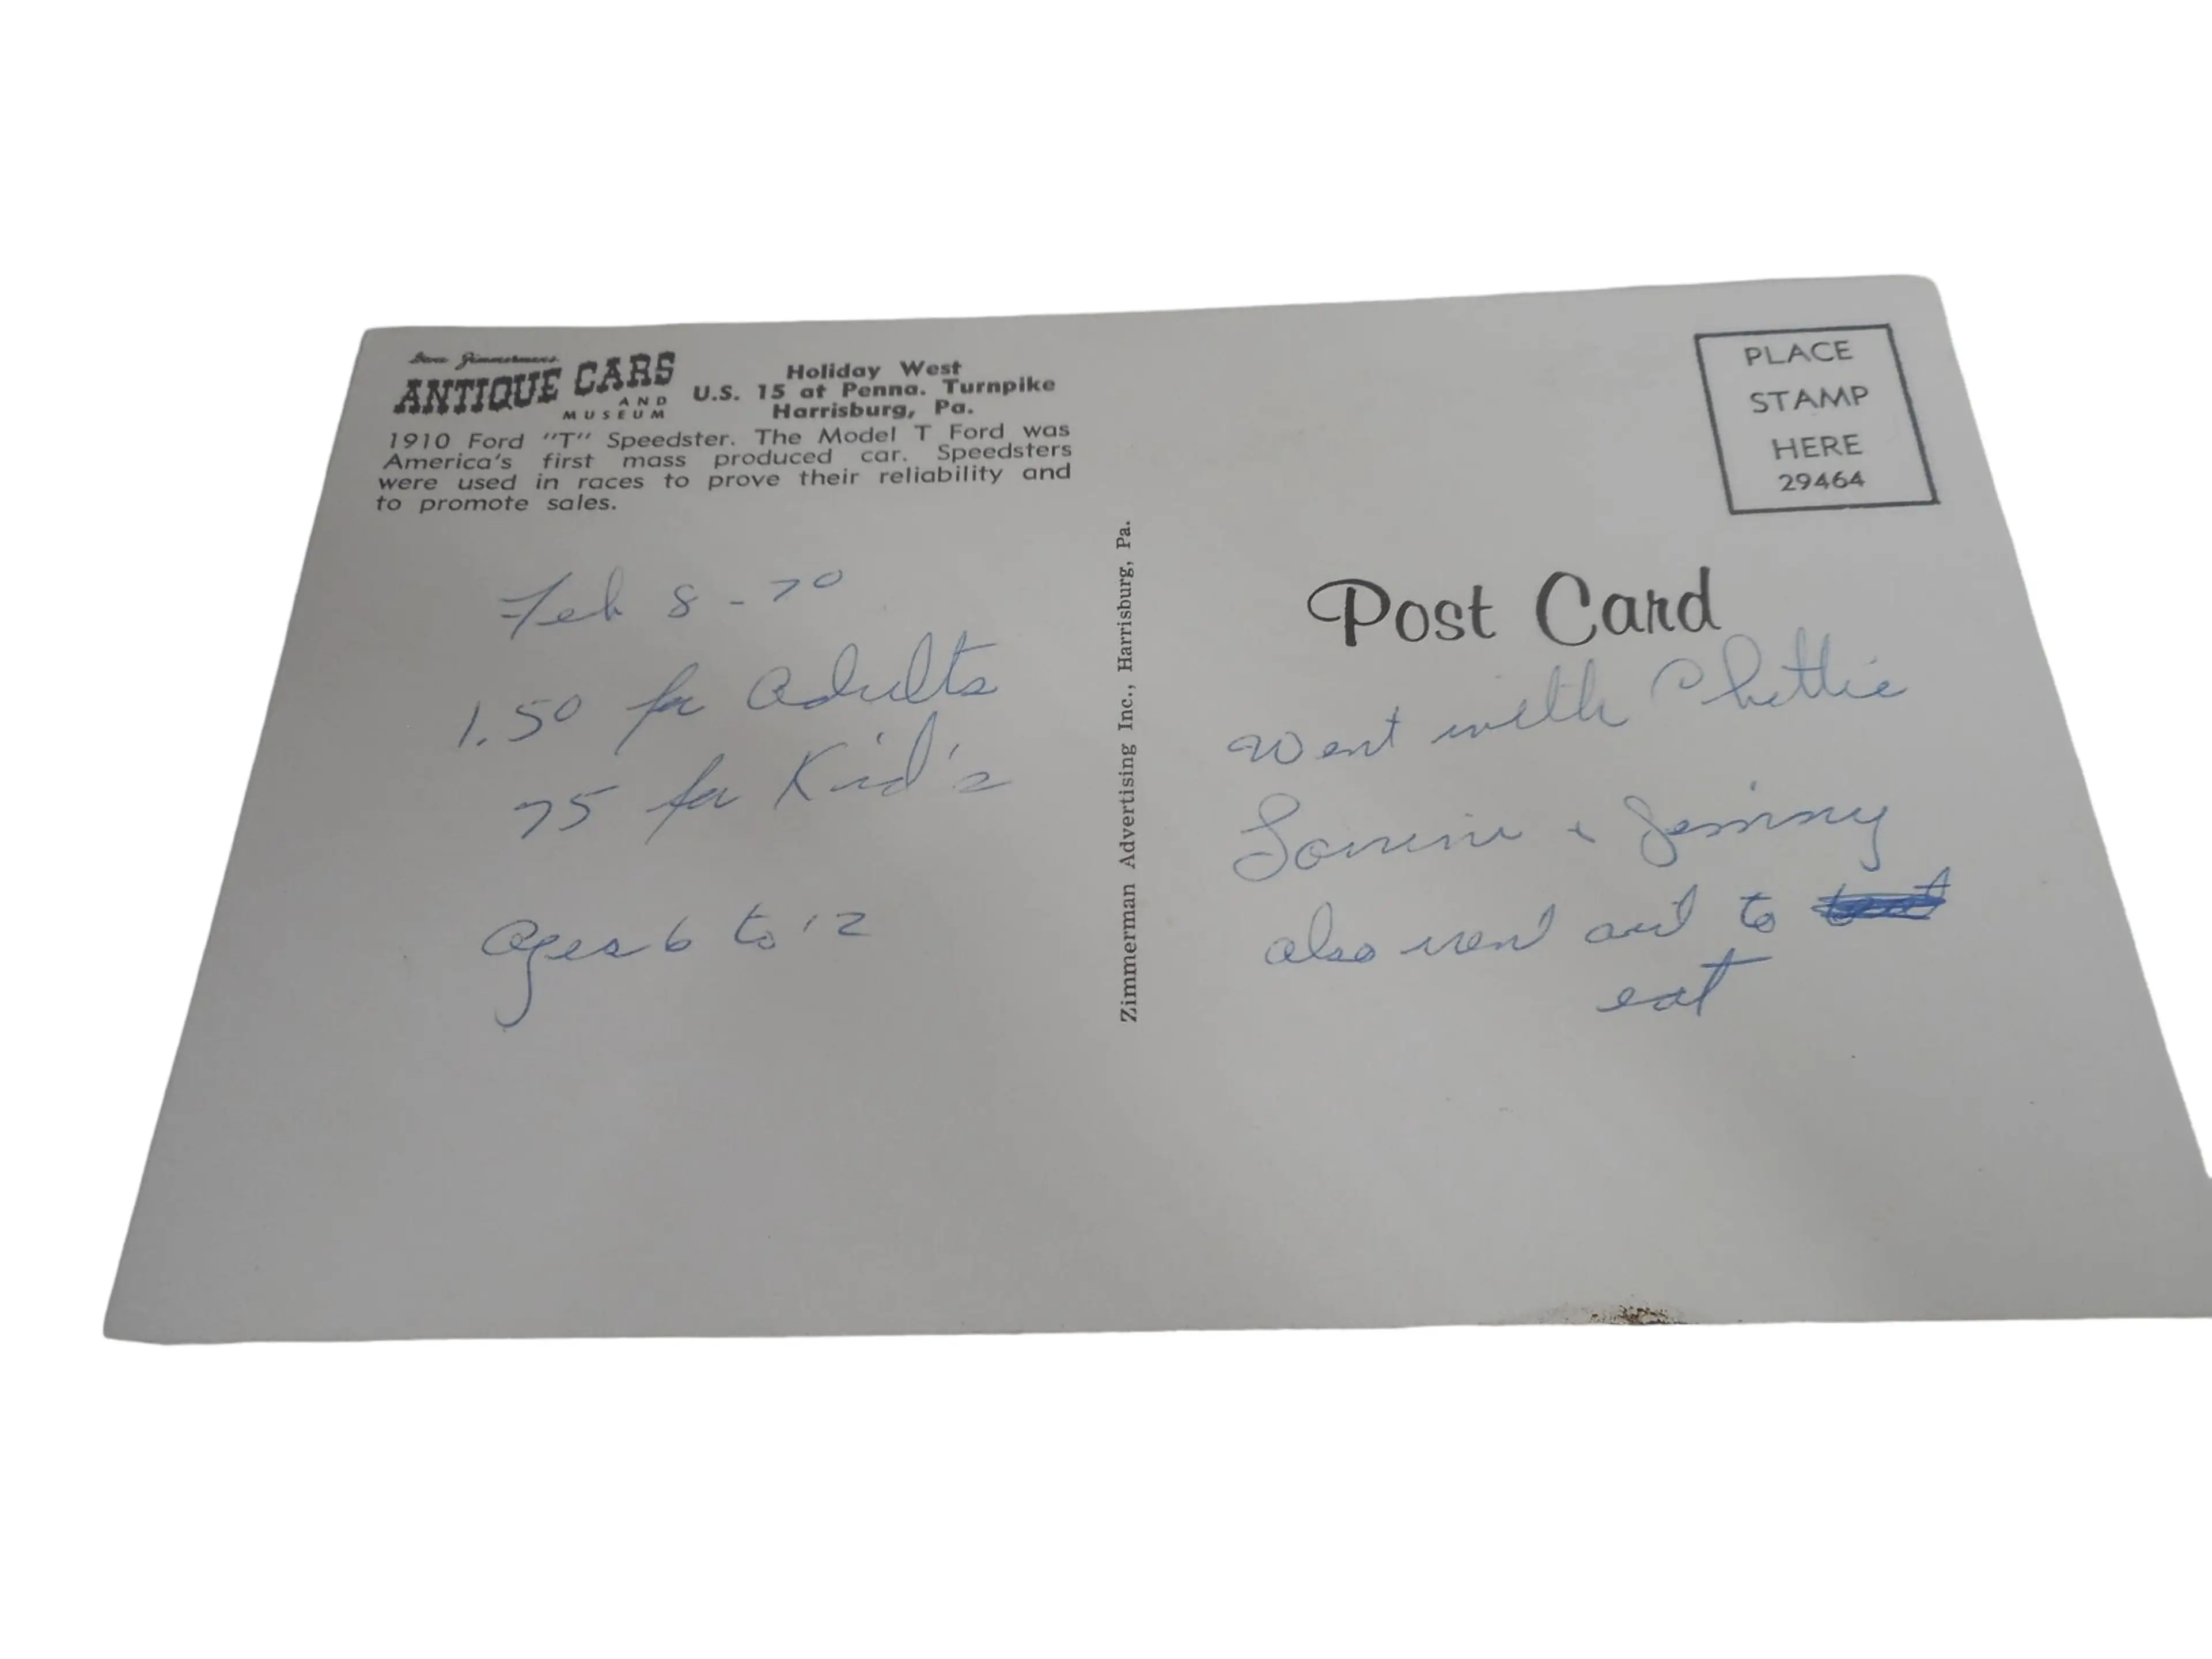 Gene Zimmerman's
ANTIQUE CARS
AND
MUSEUM
Holiday West
U.S. 15 at Penna. Turnpike
Harrisburg, Pa.
1910 Ford "T" Speedster. The Model T Ford was
America's first mass produced car. Speedsters
were used in races to prove their reliability and
to promote sales.
Feb 8 - 70
1.50 for Adults
75 for Kid's
Ages 6 to 12
Zimmerman Advertising Inc., Harrisburg, Pa.
PLACE
STAMP
HERE
29464
Post Card
Went with Chettie
& Jimmy
also went out to
eat